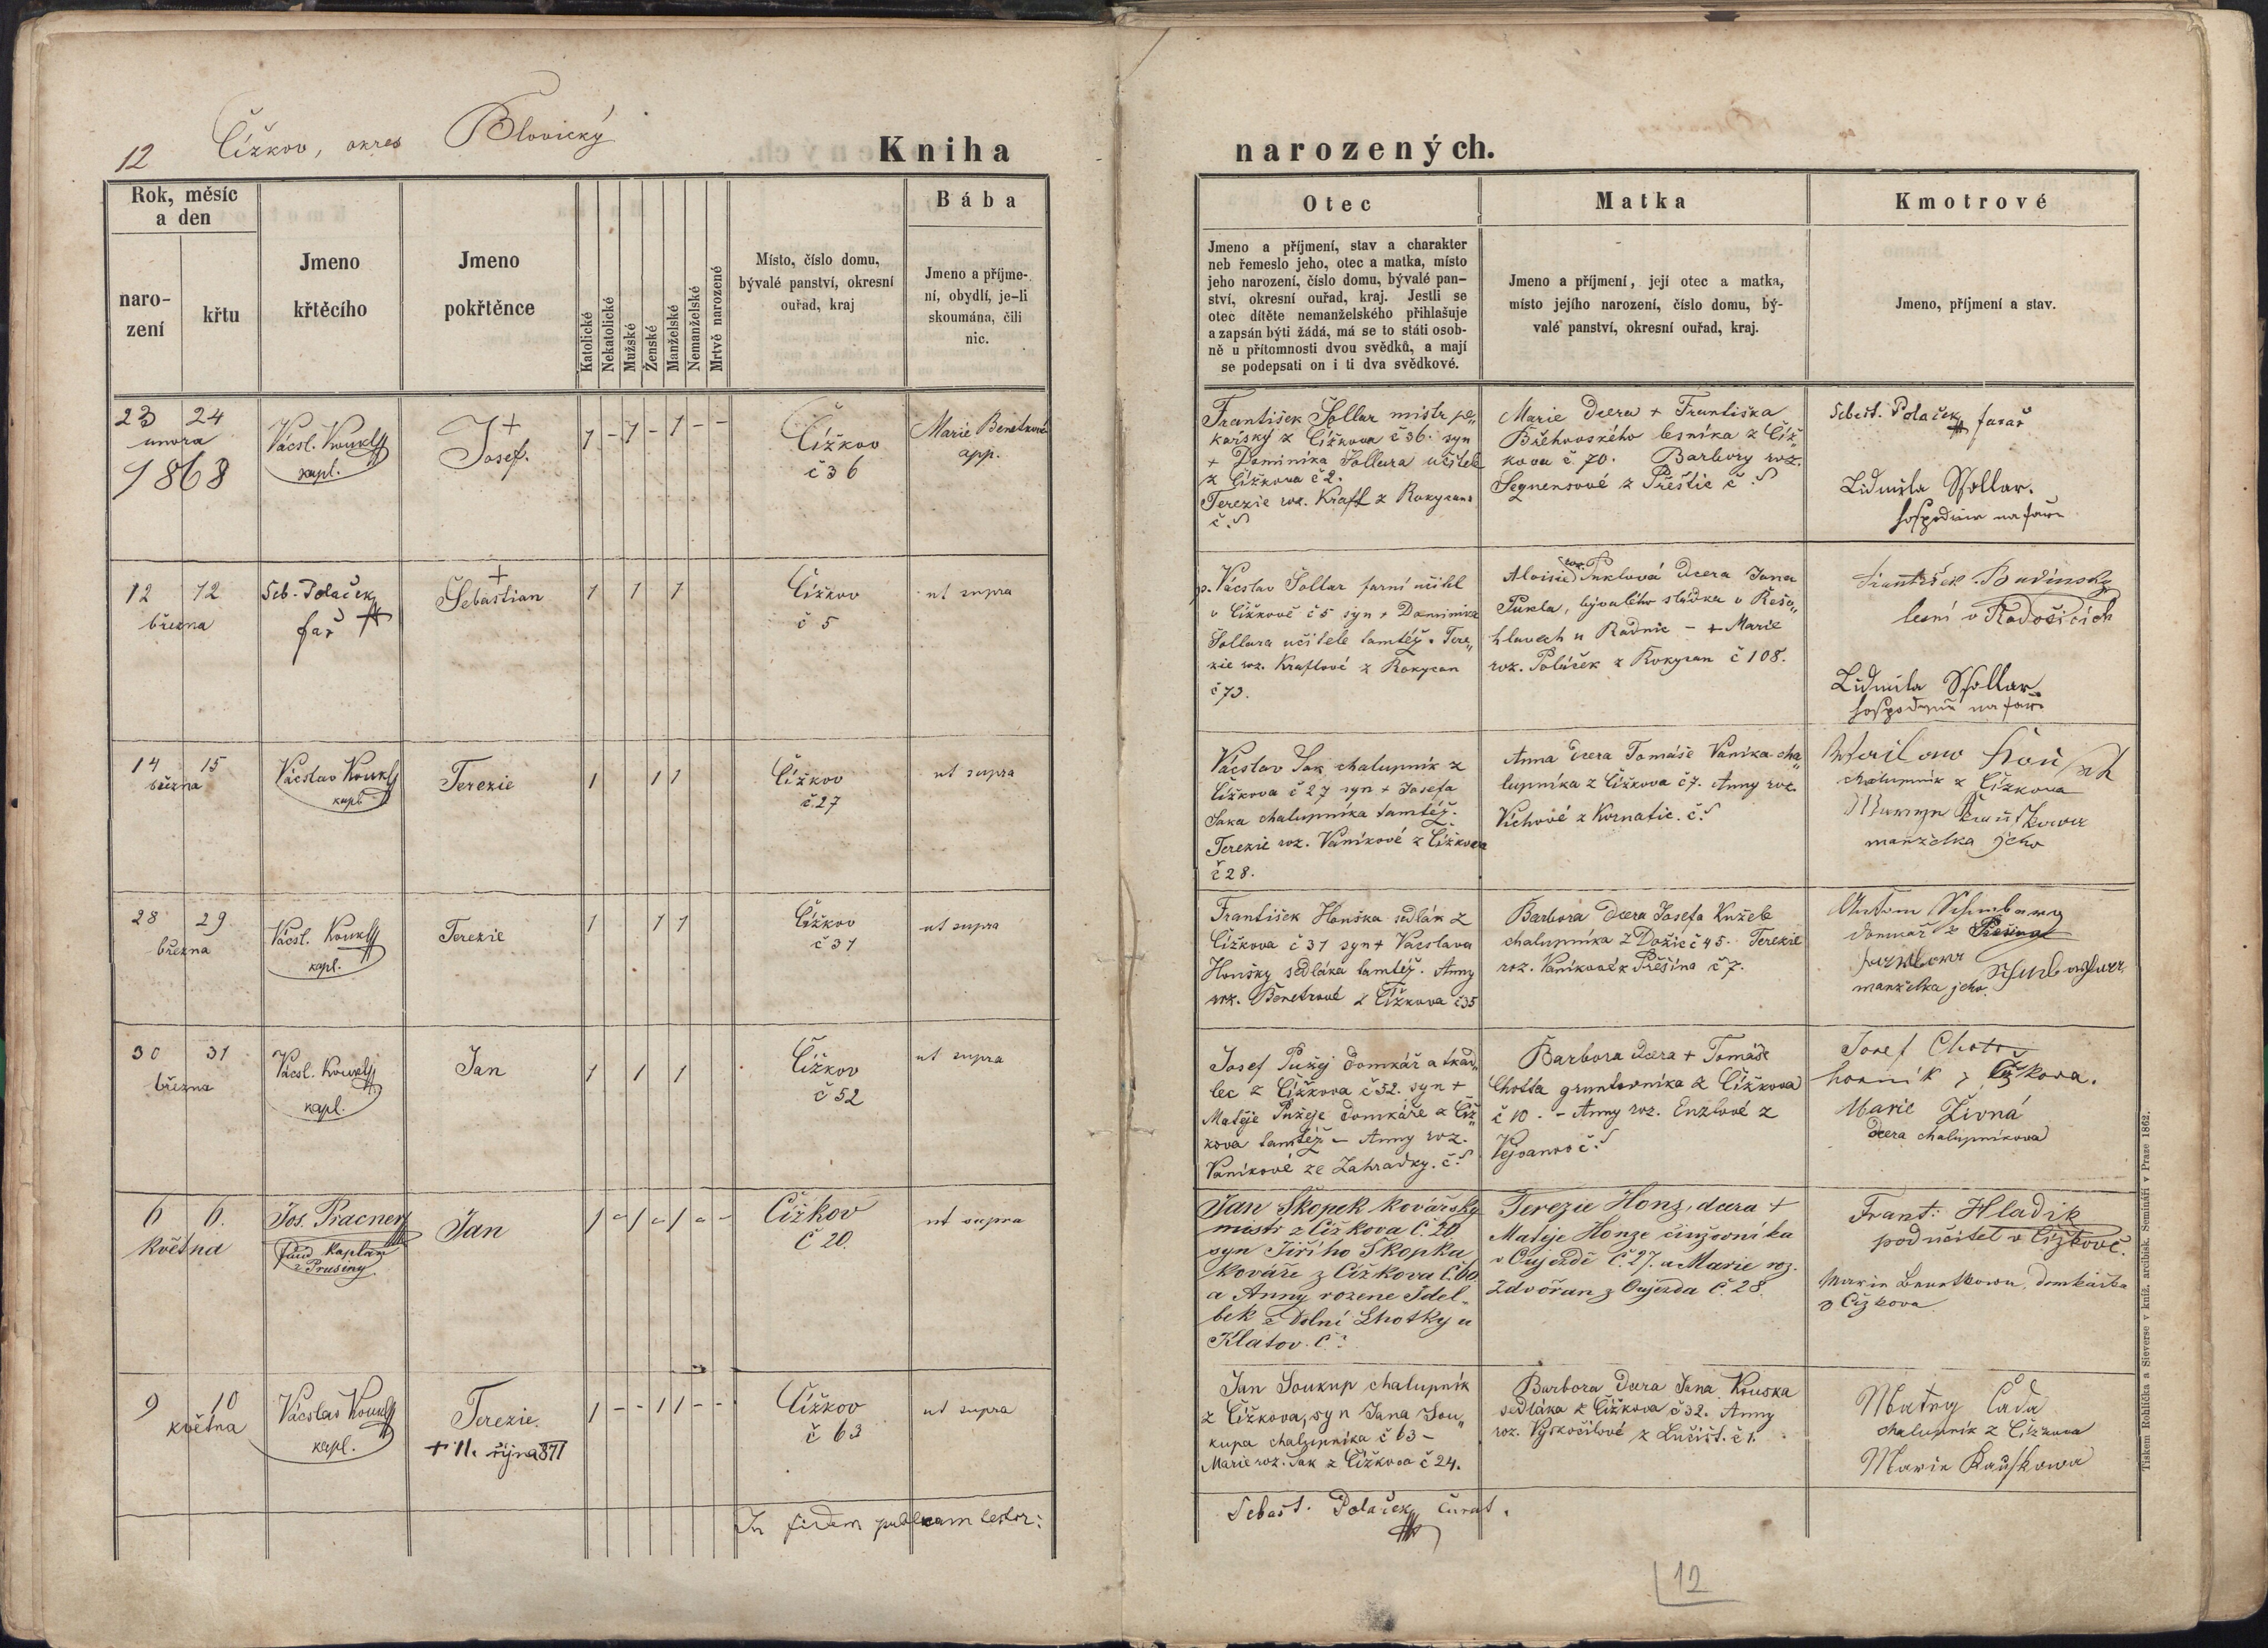 12 Čížkov, okres Blovický
Kniha
narozených.
Rok, měsíc
a den
naro-
zení
křtu
Jmeno
křtěcího
Jmeno
pokřtěnce
Katolické
Nekatolické
Mužské
Ženské
Manželské
Nemanželské
Mrtvě narozené
Místo, číslo domu,
bývalé panství, okresní
ouřad, kraj
Bába
Jmeno a příjme-
ní, obydlí, je-li
skoumána, čili
nic.
Otec
Jmeno a příjmení, stav a charakter
neb řemeslo jeho, otec a matka, místo
jeho narození, číslo domu, bývalé pan-
ství, okresní ouřad, kraj. Jestli se
otec dítěte nemanželského přihlašuje
a zapsán býti žádá, má se to státi osob-
ně u přítomnosti dvou svědků, a mají
se podepsati on i ti dva svědkové.
Matka
Jmeno a příjmení, její otec a matka,
místo jejího narození, číslo domu, bý-
valé panství, okresní ouřad, kraj.
Kmotrové
Jmeno, příjmení a stav.
23 24
unora
1868
Vácsl. Koukl
kapl.
+
Josef.
1 - 1 - 1 - -
Čížkov
č 36
Marie Benetrová
app.
František Šollar mistr pe„
kařský z Čížkova č 36. syn
+ Dominika Šollara učitele
z Čížkova č 2.
Terezie roz. Kraft z Rokycan
č.
Marie dcera + Františka
Břehovského lesníka z Číž„
kova č. 70. Barbory roz.
z Přeštic č
Sebest. Polaček farář
Lidmila Schollar.
hospodině na faře
12 12
března
Seb. Polaček
far
+
Šebastian
1 1 1
Čížkov
č 5
ut supra
p. Václav Šollar farní učitel
v Čížkově č 5 syn + Dominika
Šollara učitele tamtéž. Tere„
zie roz. Kraftové z Rokycan
č 73.
Aloisie roz. Puklová dcera Jana
Pukla, bývalého sládka v Řešo„
hlavech u Radnic - + Marie
roz. Poláček z Rokycan č 108.
František Budinský
lesní v Radošicích
Lidmila Schollar
hospodině na faře
14 15
března
Václav Koukl
kapl.
Terezie
1 1 1
Čížkov
č 27
ut supra
Václav Sak chalupník z
Čížkova č 27 syn + Josefa
Saka chalupníka tamtéž.
Terezie roz. Vaníkové z Čížkova
č 28.
Anna dcera Tomáše Vaníka cha„
lupníka z Čížkova č 7. Anny roz.
Víchové z Kornatic. č.
chalupník z Čížkova
manželka jeho
28 29
března
Vácsl. Koukl
kapl.
Terezie
1 1 1
Čížkov
č 31
ut supra
František Houška sedlák z
Čížkova č 31 syn + Václava
Houšky sedláka tamtéž. Anny
roz. Benetrové z Čížkova č 35
Barbora dcera Josefa Kužele
chalupníka z Dožic č 45. Terezie
roz. Vaníkové z Přešína č 7.
domkař z
manželka jeho.
30 31
března
Vácsl. Koukl
kapl.
Jan
1 1 1
Čížkov
č 52
ut supra
Josef Pužej domkář a tkad„
lec z Čížkova č 52. syn +
Matěje Pužeje domkáře z Číž„
kova tamtéž - Anny roz.
Vaníkové ze Zahradky. č.
Barbora dcera + Tomáše
Chotta gruntovníka z Čížkova
č 10. - Anny roz. Enzlové z
Vejvanov č.
Josef
horník z Čížkova.
Marie Živná
dcera chalupníkova
6 6.
Května
Jos. Pracner
fund Kaplan
z Prusiny
Jan
1 - 1 - 1 - -
Čížkov
č 20.
ut supra
Jan Škopek kovářský
mistr z Čížkova č. 20
syn Jiřího Škopka
kováře z Čížkova č. 60
a Anny rozene Edel-
bek z Dolní Lhotky u
Klatov. č.
Terezie Honz, dcera +
Matěje Honze činžovníka
v Oujezdě č. 27. a Marie roz.
Zdvořan z Oujezda č. 28.
Frant: Hladik
podučitel v Čížkově.
Marie domkářka
z Čížkova
9 10
května
Václav Koukl
kapl.
Terezie.
+ 11. října 871
1 - - 1 1 - -
Čížkov
č 63
ut supra
Jan Soukup chalupník
z Čížkova, syn Jana Sou„
kupa chalupníka č 63 -
Marie roz. Sak z Čížkova č 24.
Barbora dcera Jana Kouska
sedláka z Čížkova č 32. Anny
roz. Vyskočilové z Lučišt. č 1.
Matěj Čada
chalupník z Čížkova
Marie Kauskowa
In fidem publicam testor:
Sebast. Polaček Curat.
12
Tiskem Rohlíčka a Sieverse v kníž. arcibisk. Semináři v Praze 1862.